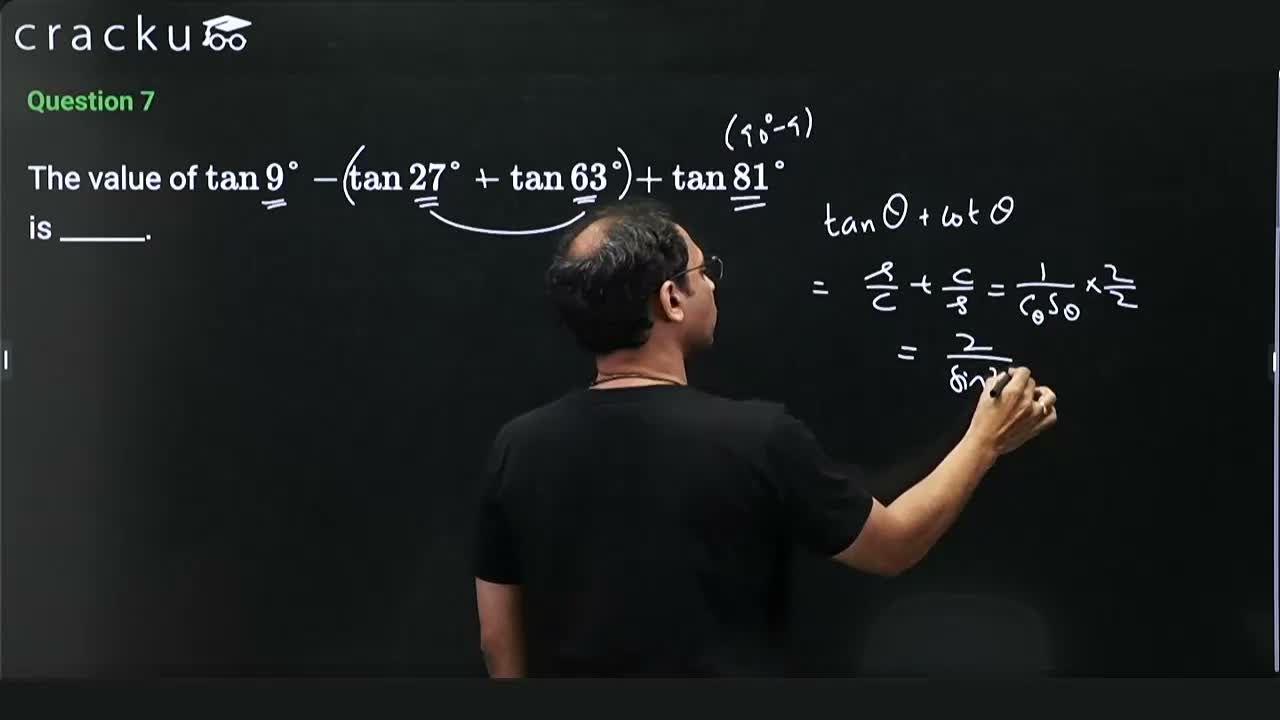 cracku
Question 7
(90°-9)
The value of tan 9° − (tan 27° + tan 63°) + tan 81°
is _____.
tan θ + cot θ
= s/c + c/s = 1/(Cθ Sθ) × 2/2
= 2/sin 2